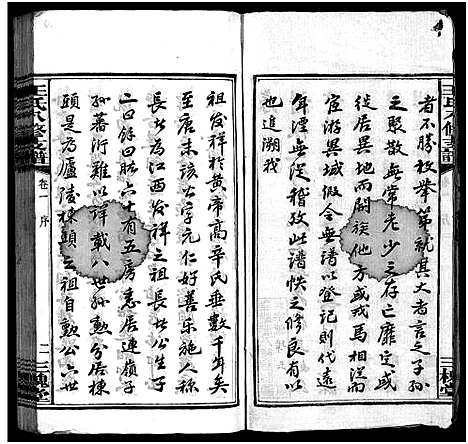 者不勝枚舉第就其大者言之子孫
之聚散無常老少之存亡靡定或
徙居異地而開族他方或戎馬相從而
宦游異域假令無譜以登記則代遠
年湮無可稽查此譜帙之修良有以
也追溯我
祖發祥於黄帝高辛氏垂數千年矣
至唐末該公字元仁好善樂施人称
長者為江西發祥之祖長公生子
二曰餘曰昿六十有五房悉居連嶺子
孫蕃衍難以詳載八世孫勲分居棟
頭是為廬陵棟頭之祖自勲公六世
王氏八修支譜
卷一
序
二
三槐堂